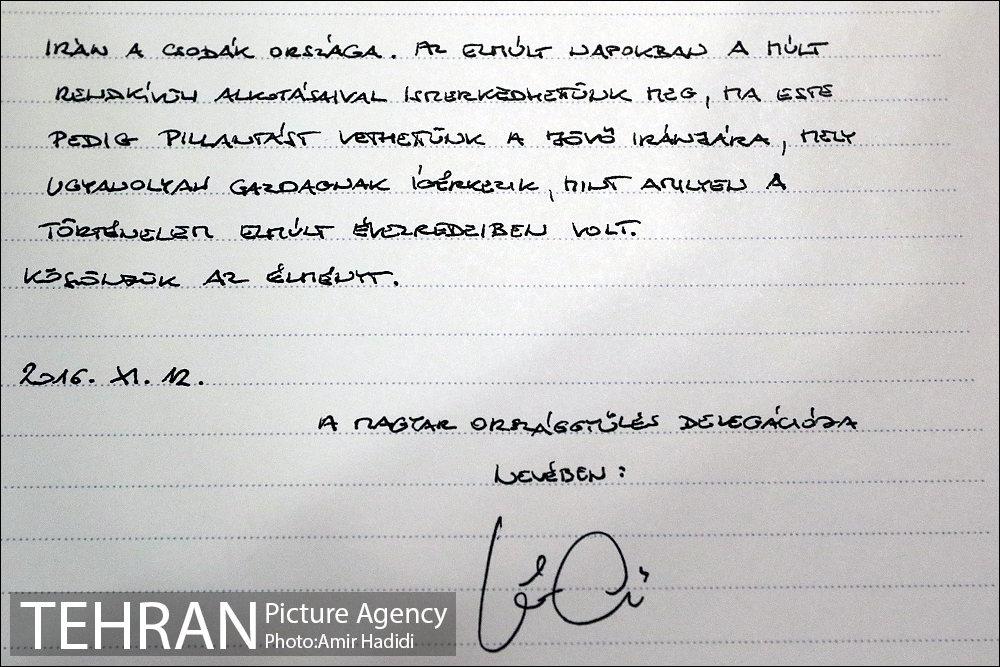 IRÁN A CSODÁK ORSZÁGA. AZ ELMÚLT NAPOKBAN A MÚLT
RENDKÍVÜLI ALKOTÁSAIVAL ISMERKEDHETTÜNK MEG, MA ESTE
PEDIG PILLANTÁST VETHETTÜNK A JÖVŐ IRÁNJÁRA, MELY
UGYANOLYAN GAZDAGNAK ÍGÉRKEZIK, MINT AMILYEN A
TÖRTÉNELEM ELMÚLT ÉVEZREDEIBEN VOLT.
KÖSZÖNJÜK AZ ÉLMÉNYT.
2016. XI. 12.
A MAGYAR ORSZÁGGYŰLÉS DELEGÁCIÓJA
NEVÉBEN:
TEHRAN Picture Agency
Photo:Amir Hadidi